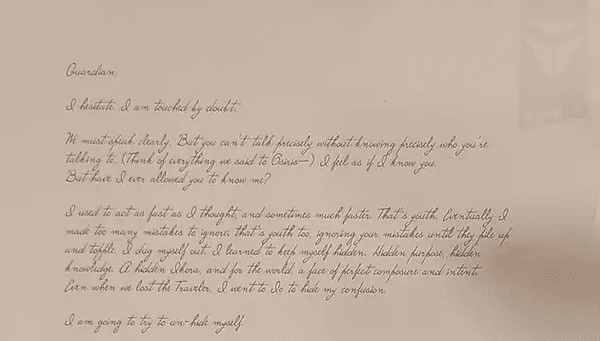 Guardian,
I hesitate. I am touched by doubt.
We must speak clearly. But you can't talk precisely without knowing precisely who you're
talking to. (Think of everything we said to Osiris—) I feel as if I know you.
But have I ever allowed you to know me?
I used to act as fast as I thought, and sometimes much faster. That's youth. Eventually I
made too many mistakes to ignore; that's youth too, ignoring your mistakes until they pile up
and topple. I dug myself out. I learned to keep myself hidden. Hidden purpose, hidden
knowledge. A hidden Ikora, and for the world, a face of perfect composure and intent.
Even when we lost the Traveler, I went to Io to hide my confusion.
I am going to try to un-hide myself.